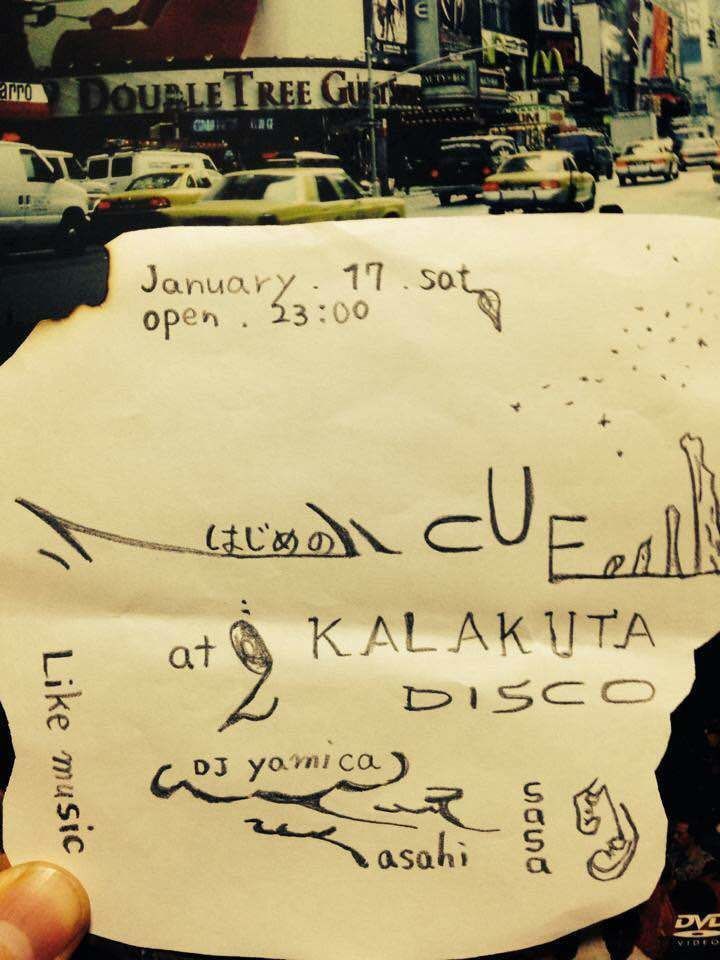 DOUBLETREE GU
January . 17 . sat
open . 23:00
はじめの CUE
at KALAKUTA
DISCO
Like music
DJ yamica
asahi
sasa
DVD
VIDEO